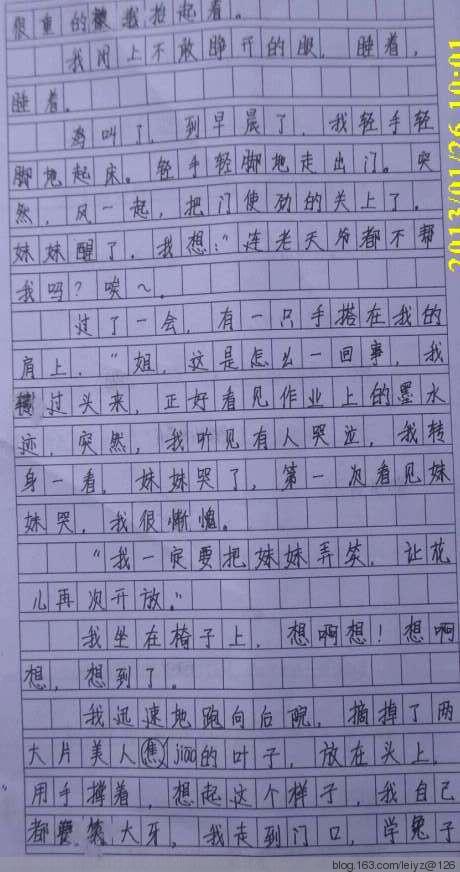 很重的被我抬起着。
我闭上不敢睁开的眼，睡着，
睡着。
鸡叫了，到早晨了，我轻手轻
脚地起床。轻手轻脚地走出门。突
然，风一起，把门使劲的关上了。
妹妹醒了，我想："连老天爷都不帮
我吗？唉~。
过了一会，有一只手搭在我的
肩上，"姐，这是怎么一回事，我
转过头来，正好看见作业上的墨水
迹，突然，我听见有人哭泣，我转
身一看，妹妹哭了，第一次看见妹
妹哭，我很惭愧。
"我一定要把妹妹弄笑，让花
儿再次开放。"
我坐在椅子上，想啊想！想啊
想，想到了。
我迅速地跑向后院，摘掉了两
大片美人蕉jiao的叶子，放在头上，
用手撑着，想起这个样子，我自己
都笑大牙，我走到门口，学兔子
2013/01/26 10:01
blog.163.com/leiyz@126